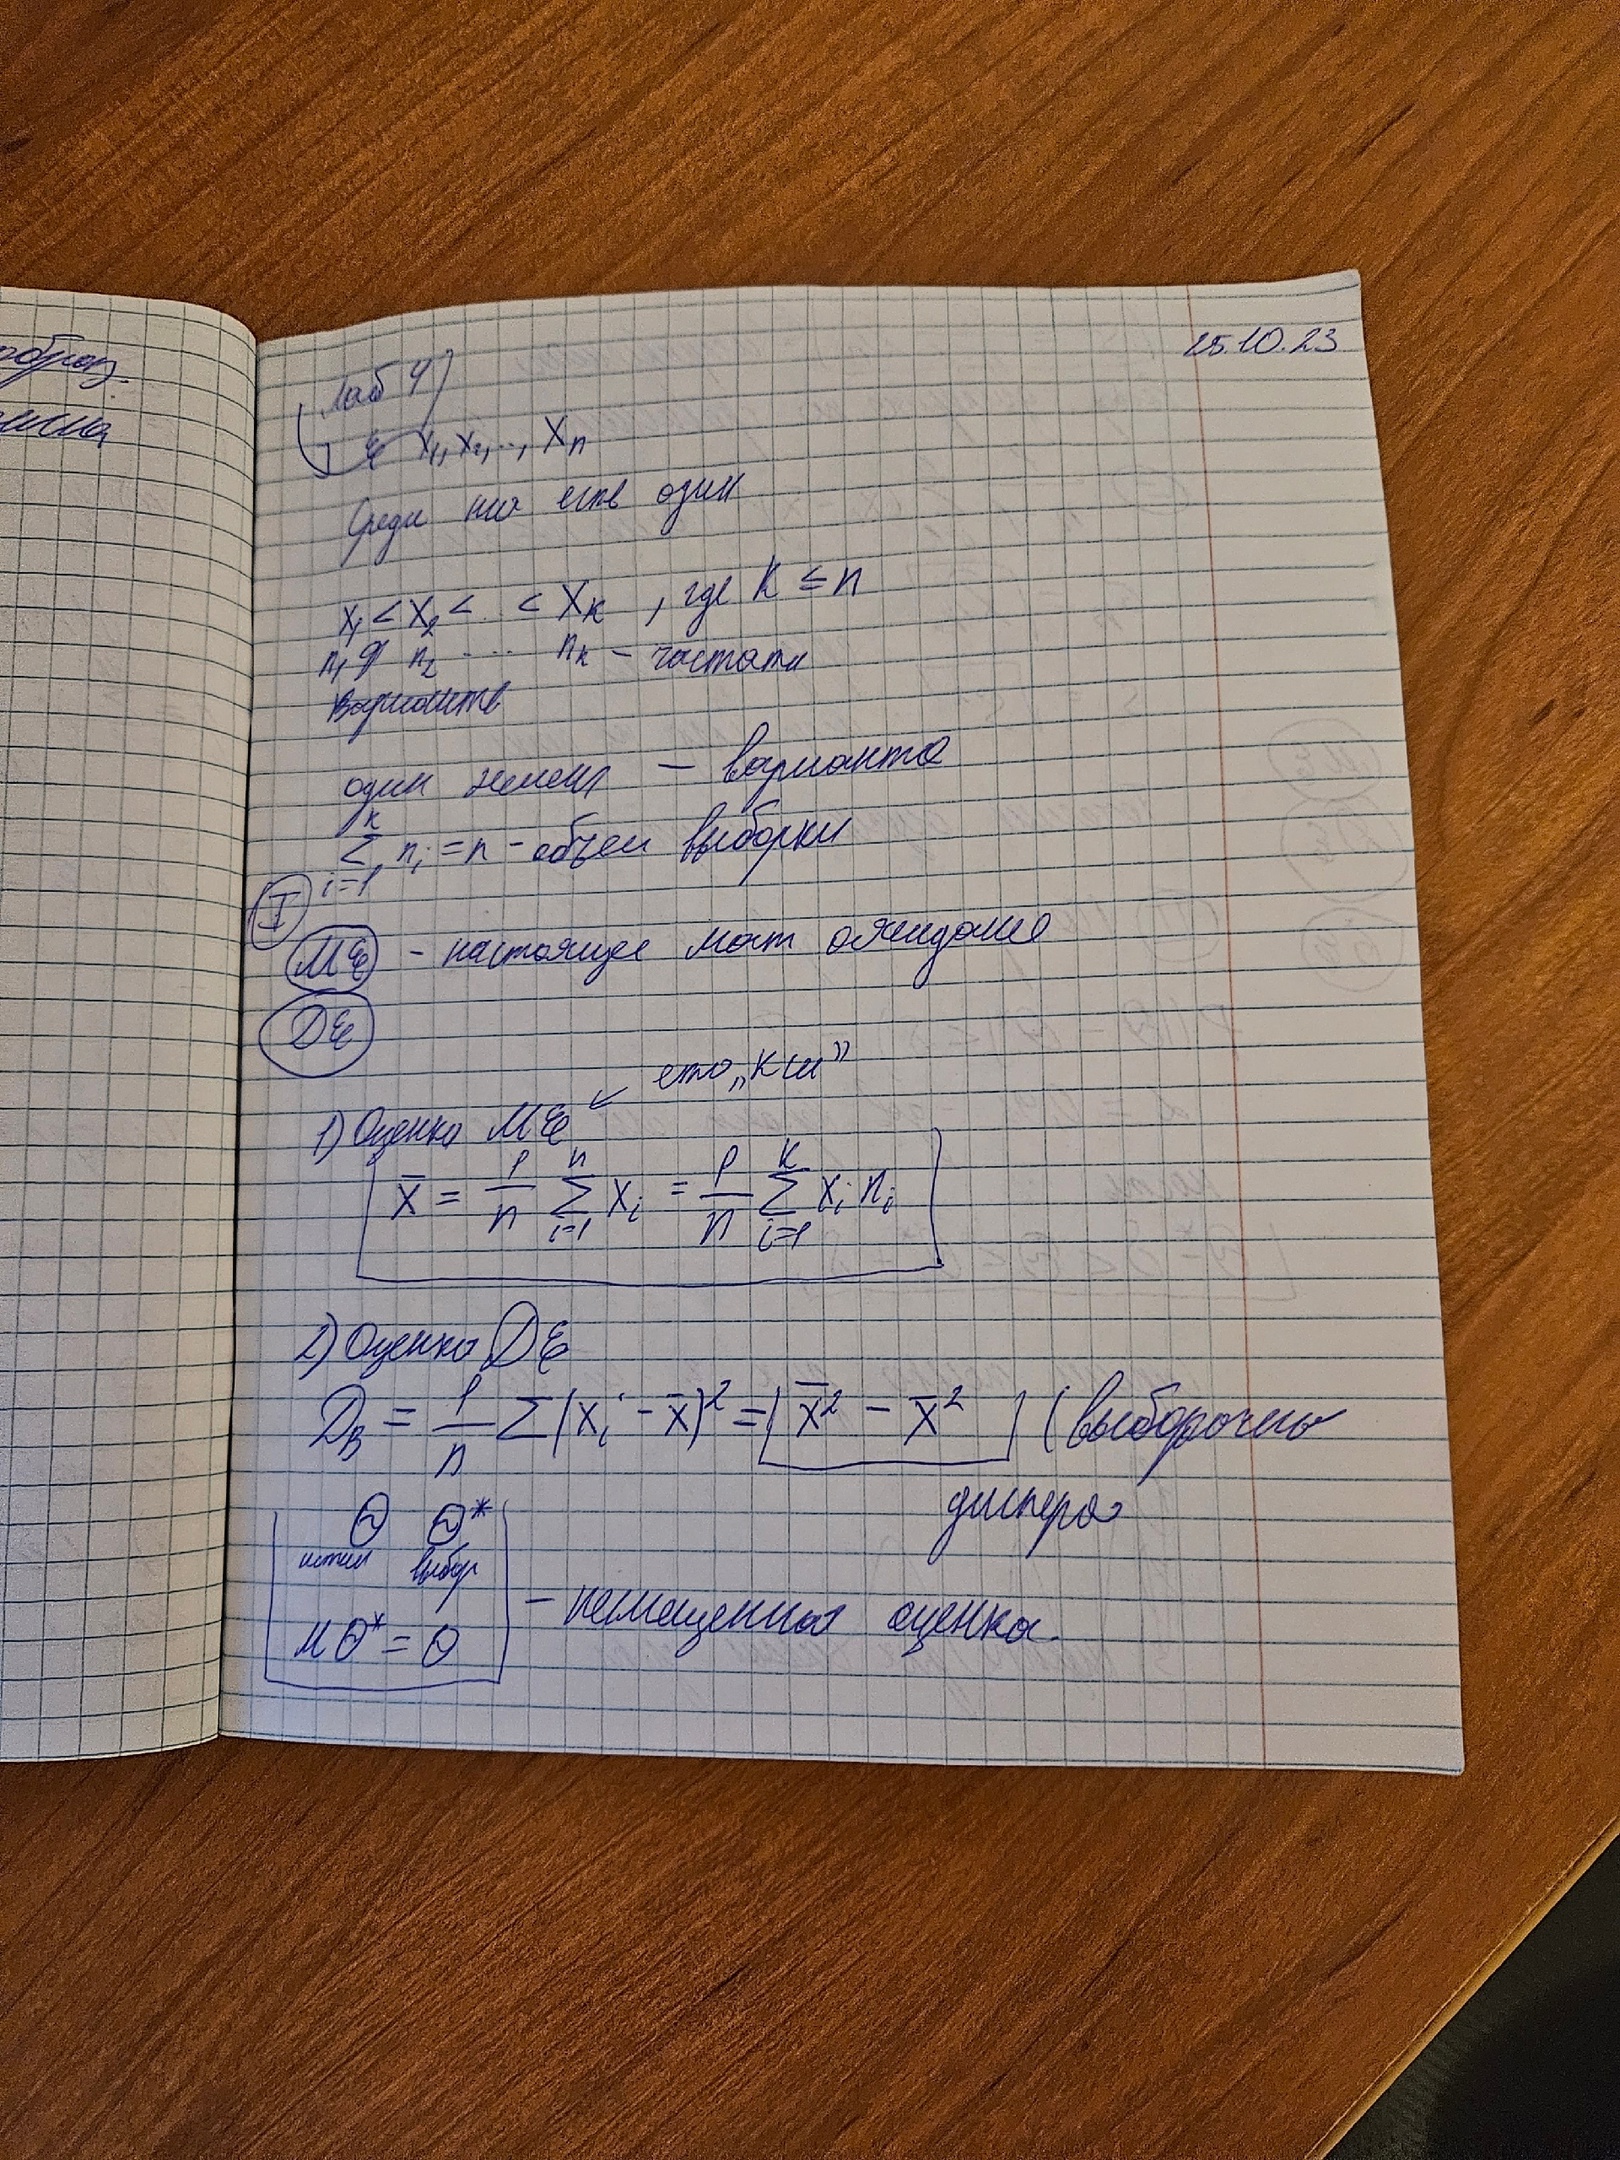 ообраз.
25.10.23
Лаб 4
ξ x₁, x₂, .., Xₙ
Среди них есть один
x₁ < x₂ < .. < Xₖ , где K ≤ n
n₁ n₂ ... nₖ - частоты
один элемент - варианта
∑ᵢ₌₁ᵏ nᵢ = n - объем выборки
I
Mξ - настоящее мат ожидание
Dξ
это „кси”
1) Оценка Mξ
x̄ = 1/n ∑ᵢ₌₁ⁿ xᵢ = 1/n ∑ᵢ₌₁ᵏ xᵢ nᵢ
2) Оценка Dξ
D_В = 1/n ∑(xᵢ - x̄)² = x̄² - x̄² (выборочно
диспера
Θ Θ*
истин выбор
MΘ* = Θ - несмещенная оценка.